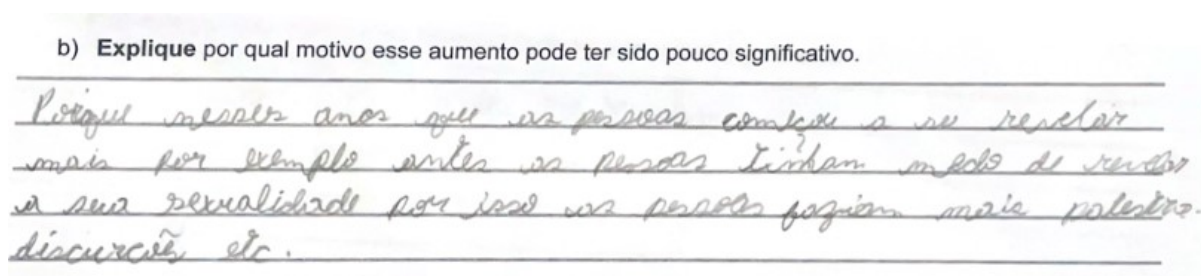 b) Explique por qual motivo esse aumento pode ter sido pouco significativo.
Porque nesses anos que as pessoas começou a se revelar
mais por exemplo antes as pessoas tinham medo de revelar
a sua sexualidade por isso as pessoas faziam mais palestra.
discurcoẽs etc.